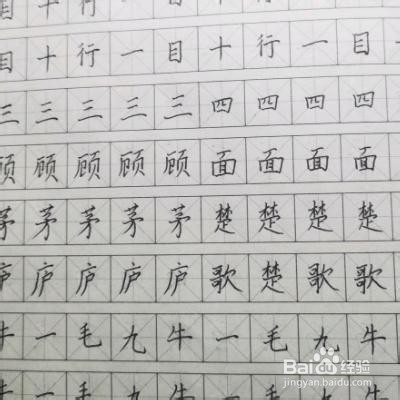 目十行一目十行一目
三三三三三四四四四
顾顾顾顾顾面面面面
茅茅茅茅茅楚楚楚楚
庐庐庐庐庐歌楚歌歌
牛一毛九牛一毛九牛
Baidu经验
jingyan.baidu.com